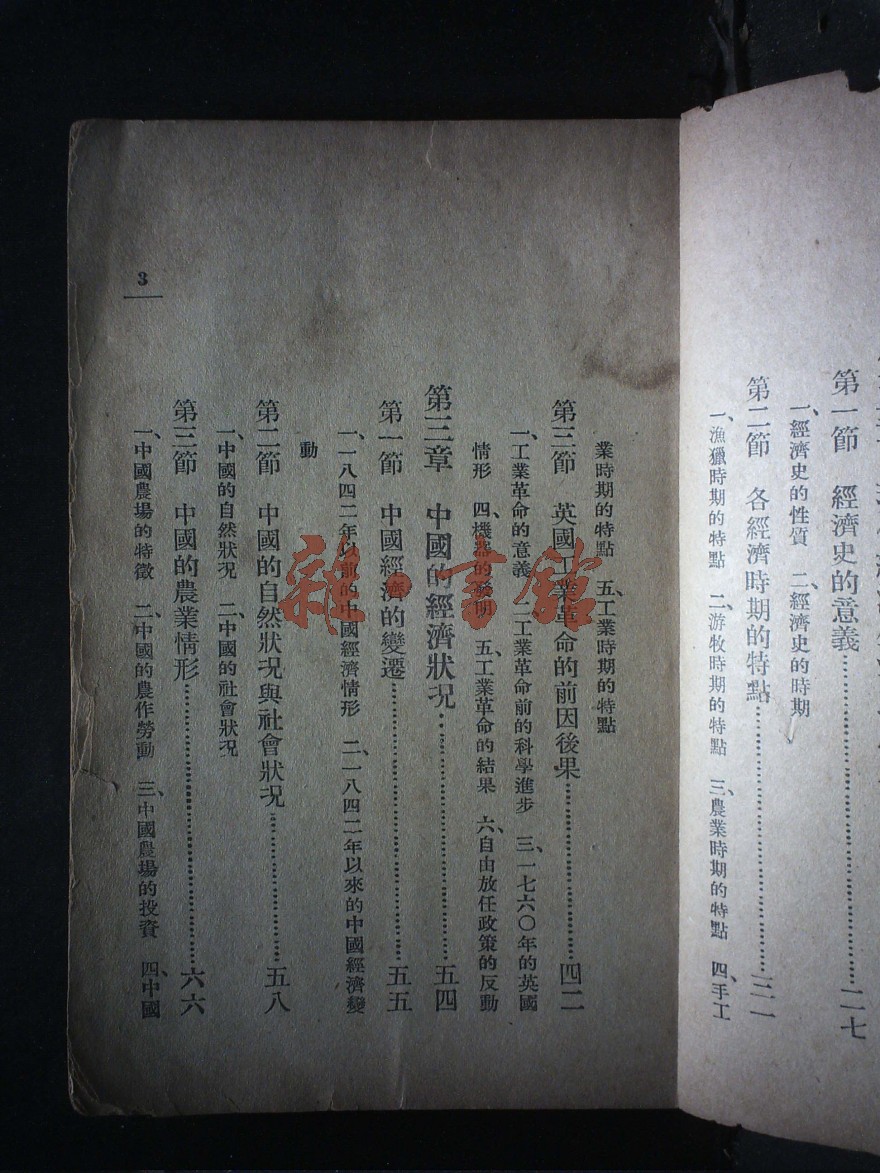 第一節　經濟史的意義……………………二七
一、經濟史的性質　二、經濟史的時期
第二節　各經濟時期的特點……………………三一
一、漁獵時期的特點　二、游牧時期的特點　三、農業時期的特點　四、手工
業時期的特點　五、工業時期的特點
第三節　英國工業革命的前因後果……………………四二
一、工業革命的意義　二、工業革命前的科學進步　三、一七六〇年的英國
情形　四、機器的發明　五、工業革命的結果　六、自由放任政策的反動
第三章　中國的經濟狀況……………………五四
第一節　中國經濟的變遷……………………五五
一、一八四二年以前的中國經濟情形　二、一八四二年以來的中國經濟變
動
第二節　中國的自然狀况與社會狀况……………………五八
一、中國的自然狀况　二、中國的社會狀况
第三節　中國的農業情形……………………六六
一、中國農場的特徵　二、中國的農作勞動　三、中國農場的投資　四、中國
3
雜·書館